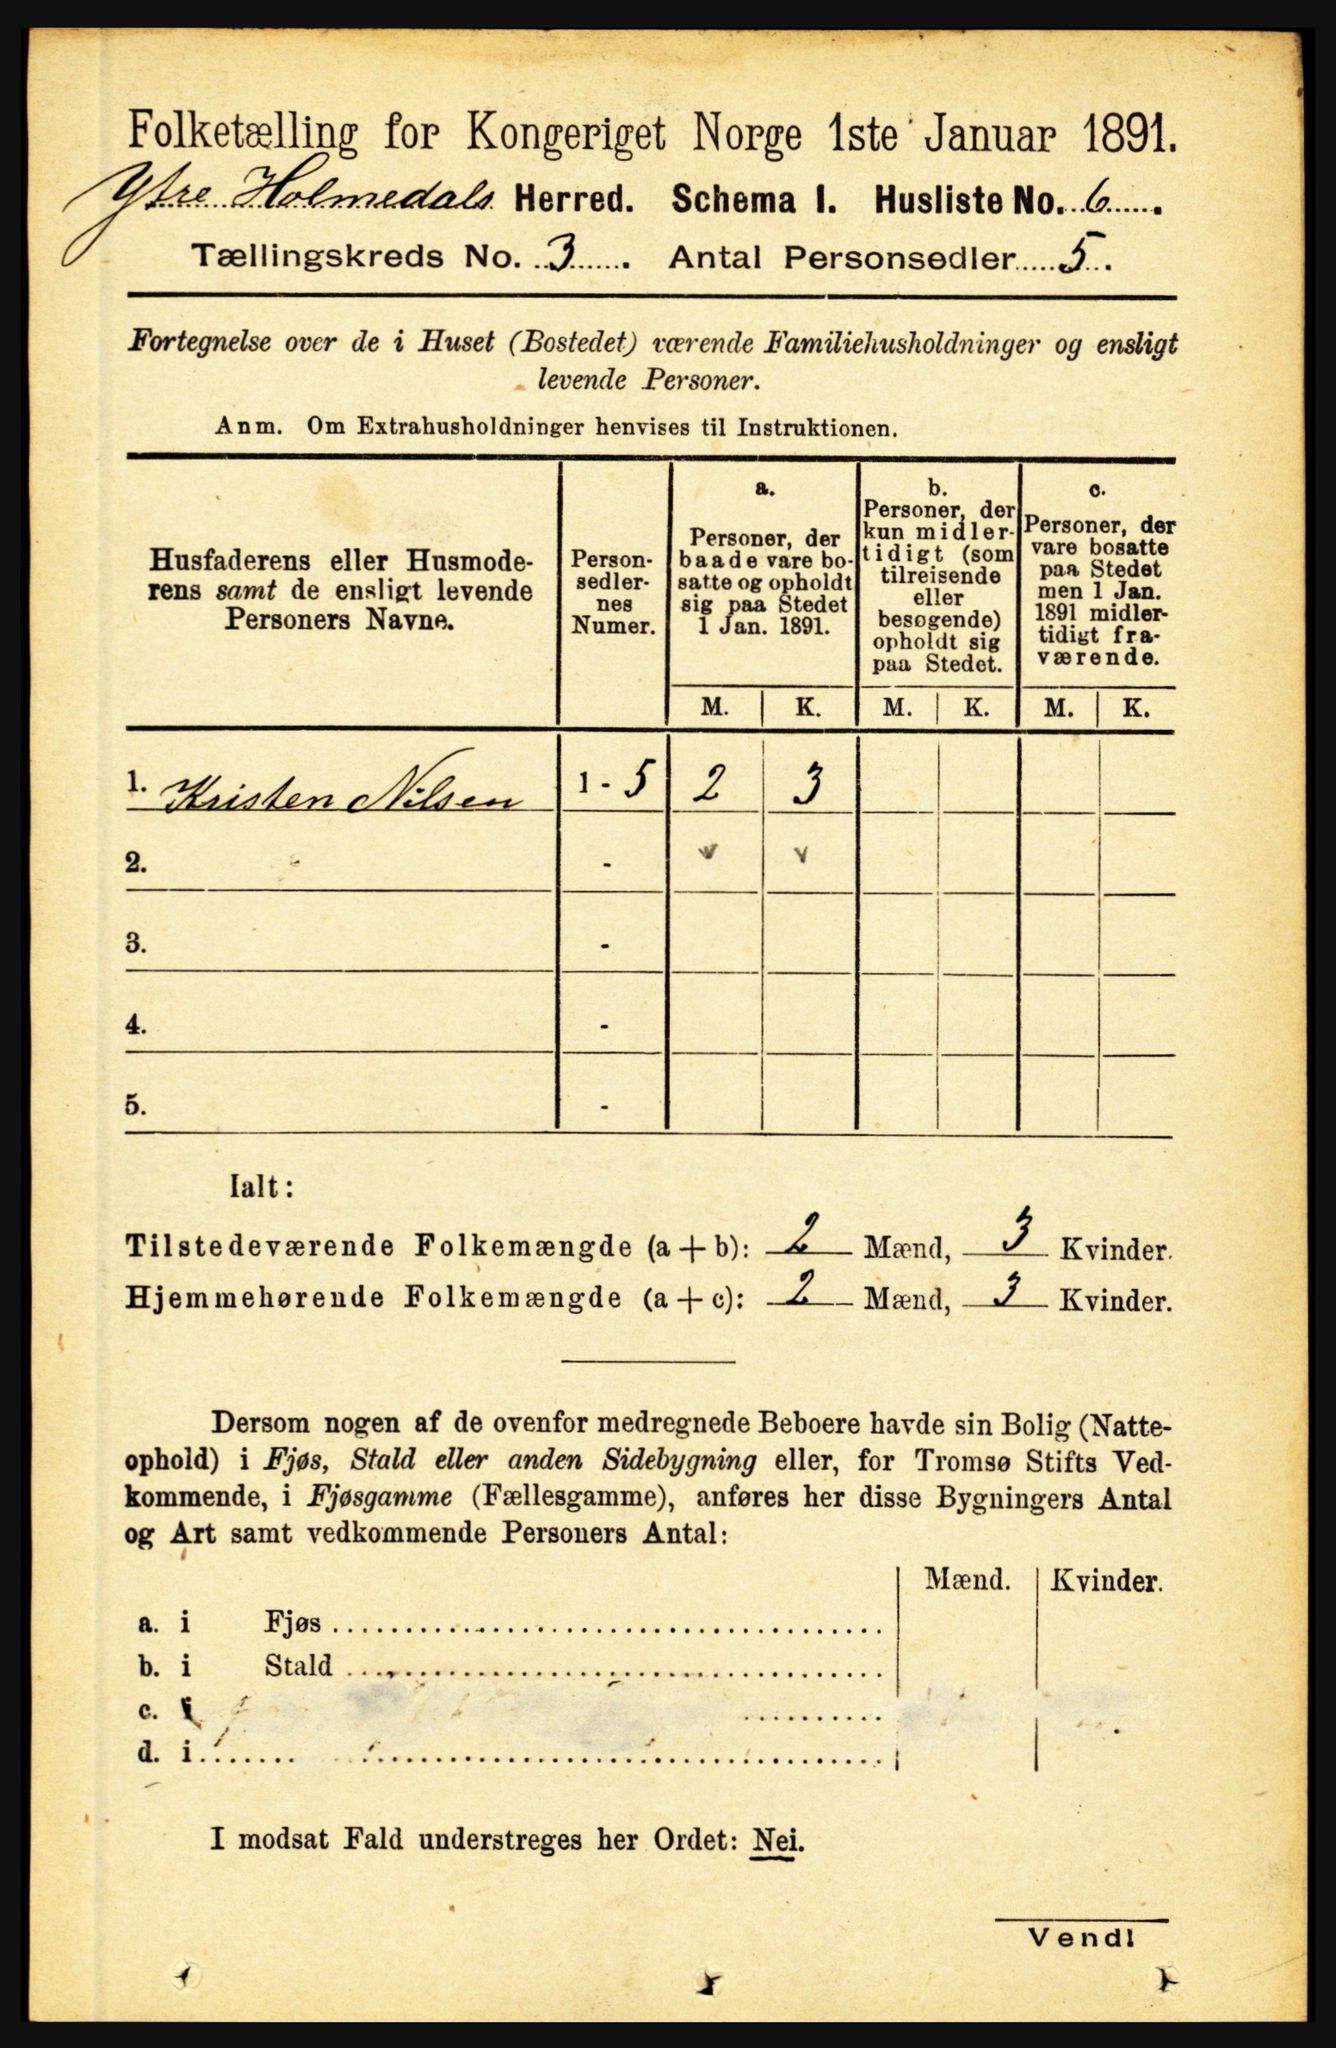 Folketælling for Kongeriget Norge 1ste Januar 1891.
Ytre Holmedals Herred. Schema I. Husliste No. 6.
Tællingskreds No. 3. Antal Personsedler 5.
Fortegnelse over de i Huset (Bostedet) værende Familiehusholdninger og ensligt
levende Personer.
Anm. Om Extrahusholdninger henvises til Instruktionen.
Husfaderens eller Husmode-
rens samt de ensligt levende
Personers Navne.
Person-
sedler-
nes
Numer.
a.
Personer, der
baade vare bo-
satte og opholdt
sig paa Stedet
1 Jan. 1891.
b.
Personer, der
kun midler-
tidigt (som
tilreisende
eller
besøgende)
opholdt sig
paa Stedet.
c.
Personer, der
vare bosatte
paa Stedet
men 1 Jan.
1891 midler-
tidigt fra-
værende.
M. K. M. K. M. K.
1. Kristen Nilsen 1 - 5 2 3
2. - v v
3. -
4. -
5. -
Ialt:
Tilstedeværende Folkemængde (a + b): 2 Mænd, 3 Kvinder.
Hjemmehørende Folkemængde (a + c): 2 Mænd, 3 Kvinder.
Dersom nogen af de ovenfor medregnede Beboere havde sin Bolig (Natte-
ophold) i Fjøs, Stald eller anden Sidebygning eller, for Tromsø Stifts Ved-
kommende, i Fjøsgamme (Fællesgamme), anføres her disse Bygningers Antal
og Art samt vedkommende Personers Antal:
Mænd. Kvinder.
a. i Fjøs
b. i Stald
c.
d. i
I modsat Fald understreges her Ordet: Nei.
Vend!